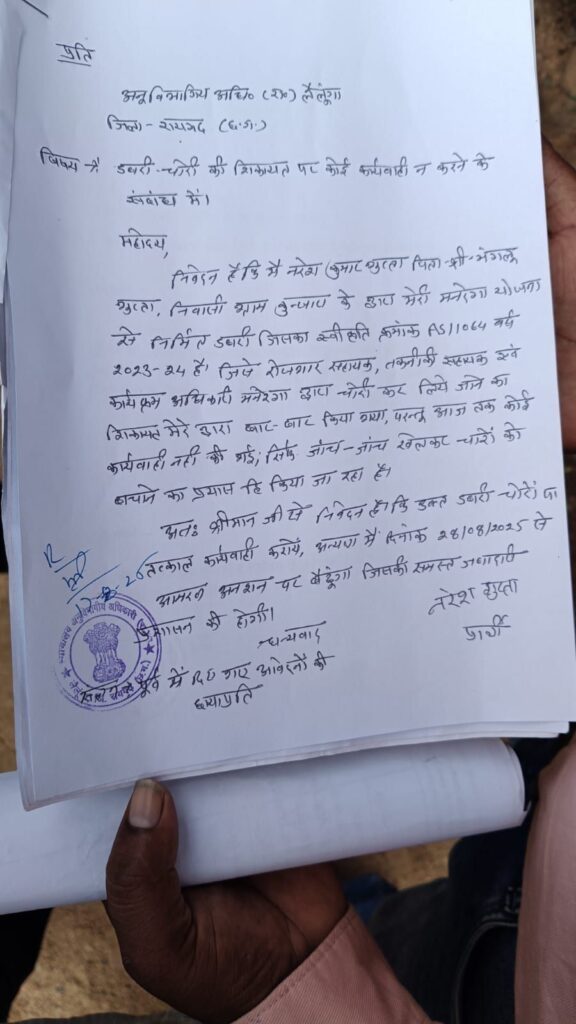 प्रति
अनुविभागिय अधि० (रा०) लैलूंगा
जिला - रायगढ़ (छ.ग.)
विषय :- डबरी-चोरी की शिकायत पर कोई कार्यवाही न करने के
संबंध में।
महोदय,
निवेदन है कि मैं नरेश कुमार गुप्ता पिता श्री मंगलू
गुप्ता, निवासी ग्राम के द्वारा मेरी मनरेगा योजना
से निर्मित डबरी जिसका स्वीकृति क्रमांक AS/1064 वर्ष
2023-24 है। जिसे रोजगार सहायक, तकनीकी सहायक एवं
कार्यक्रम अधिकारी मनरेगा द्वारा चोरी कर लिये जाने का
शिकायत मेरे द्वारा बार-बार किया गया, परन्तु आज तक कोई
कार्यवाही नहीं की गई, सिर्फ जांच-जांच खेलकर चोरों को
बचाने का प्रयास हि किया जा रहा है।
अतः श्रीमान जी से निवेदन है। कि उक्त डबरी चोरों पर
तत्काल कार्यवाही करायें, अन्यथा में दिनांक 28/08/2025 से
आमरण अनशन पर बैठूंगा जिसकी समस्त जवाबदारी
प्रशासन की होगी।
धन्यवाद
नरेश गुप्ता
प्रार्थी
पूर्व में दिए गए आवेदनों की
छायाप्रति